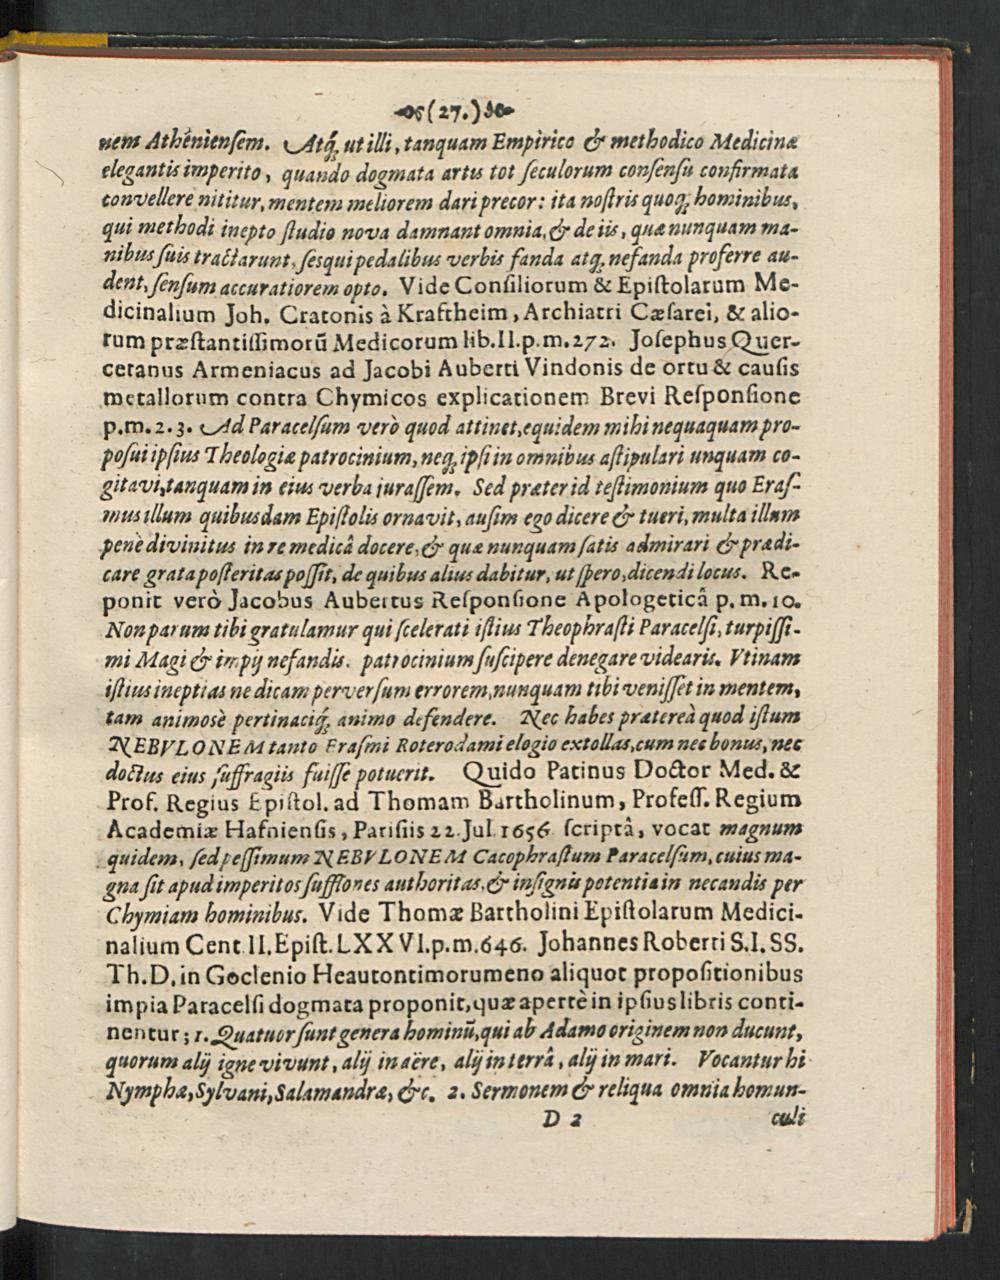 (27.)
nem Athēniensem. Atq; ut illi, tanquam Empirico & methodico Medicinæ
elegantis imperito, quando dogmata artis tot seculorum consensu confirmata
convellere nititur, mentem meliorem dari precor: ita nostris quoq; hominibus,
qui methodi inepto studio nova damnant omnia, & de iis, quæ nunquam ma-
nibus suis tractarunt, sesquipedalibus verbis fanda atq; nefanda proferre au-
dent, sensum accuratiorem opto. Vide Consiliorum & Epistolarum Me-
dicinalium Joh. Cratonis à Kraftheim, Archiatri Cæsarei, & alio-
rum præstantissimorū Medicorum lib. II. p. m. 272. Josephus Quer-
cetanus Armeniacus ad Jacobi Auberti Vindonis de ortu & causis
metallorum contra Chymicos explicationem Brevi Responsione
p. m. 2. 3. Ad Paracelsum verò quod attinet, equidem mihi nequaquam pro-
posui ipsius Theologiæ patrocinium, neq; ipsi in omnibus astipulari unquam co-
gitavi, tanquam in eius verba jurassem. Sed præter id testimonium quo Eras-
mus illum quibusdam Epistolis ornavit, ausim ego dicere & tueri, multa illum
penè divinitus in re medicâ docere, & quæ nunquam satis admirari & prædi-
care grata posteritas possit, de quibus alius dabitur, ut spero, dicendi locus. Re-
ponit verò Jacobus Aubertus Responsione Apologeticâ p. m. 10.
Non parum tibi gratulamur qui scelerati istius Theophrasti Paracelsi, turpissi-
mi Magi & impij nefandis. patrocinium suscipere denegare videaris. Vtinam
istius ineptias ne dicam perversum errorem, nunquam tibi venisset in mentem,
tam animosè pertinaciq; animo defendere. Nec habes prætereà quod istum
NEBVLONEM tanto Erasmi Roterodami elogio extollas, cum nec bonus, nec
doctus eius suffragiis fuisse potuerit. Quido Patinus Doctor Med. &
Prof. Regius Epistol. ad Thomam Bartholinum, Profess. Regium
Academiæ Hafniensis, Parisiis 22. Jul. 1656 scriptâ, vocat magnum
quidem, sed pessimum NEBVLONEM Cacophrastum Paracelsum, cuius ma-
gna sit apud imperitos sufflones authoritas, & insignis potentia in necandis per
Chymiam hominibus. Vide Thomæ Bartholini Epistolarum Medici-
nalium Cent. II. Epist. LXXVI. p. m. 646. Johannes Roberti S. I. SS.
Th. D. in Goclenio Heautontimorumeno aliquot propositionibus
impia Paracelsi dogmata proponit, quæ apertè in ipsius libris conti-
nentur; 1. Quatuor sunt genera hominū, qui ab Adamo originem non ducunt,
quorum alij igne vivunt, alij in aëre, alij in terrâ, alij in mari. Vocantur hi
Nymphæ, Sylvani, Salamandræ, &c. 2. Sermonem & reliqua omnia homun-
D 2 culi